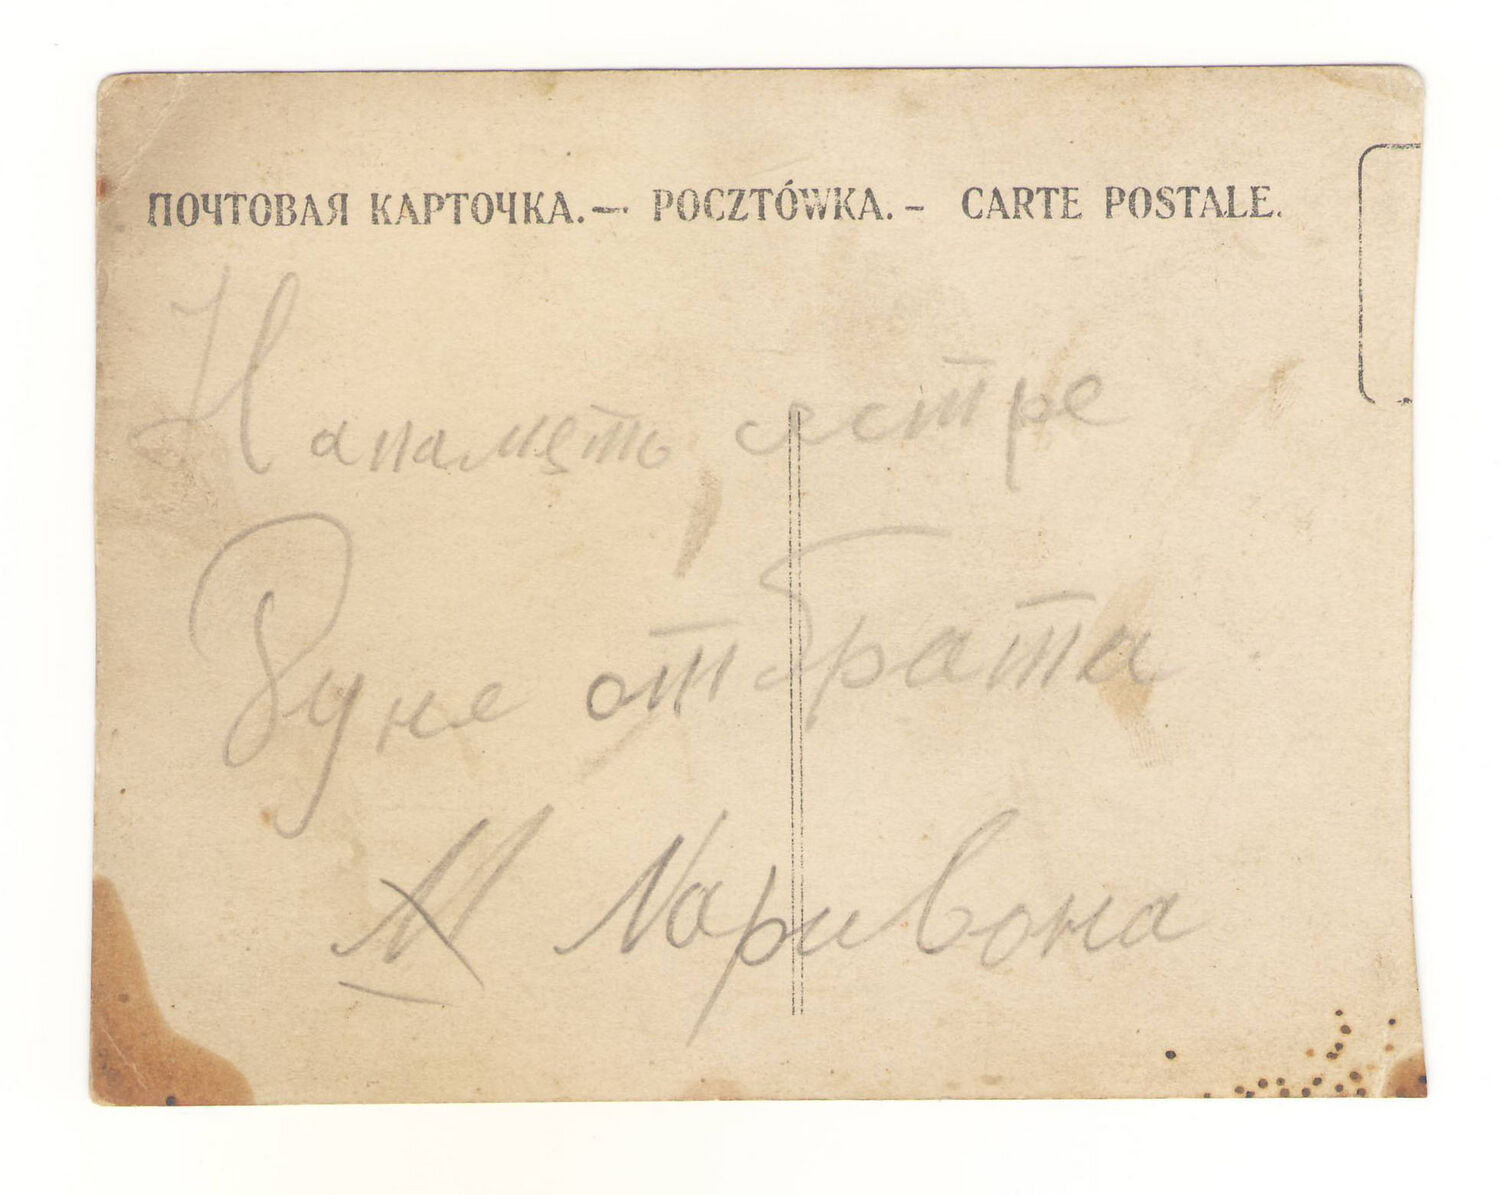 ПОЧТОВАЯ КАРТОЧКА. — POCZTÓWKA. – CARTE POSTALE.
На память сестре
Дуне от брата
Ларивона